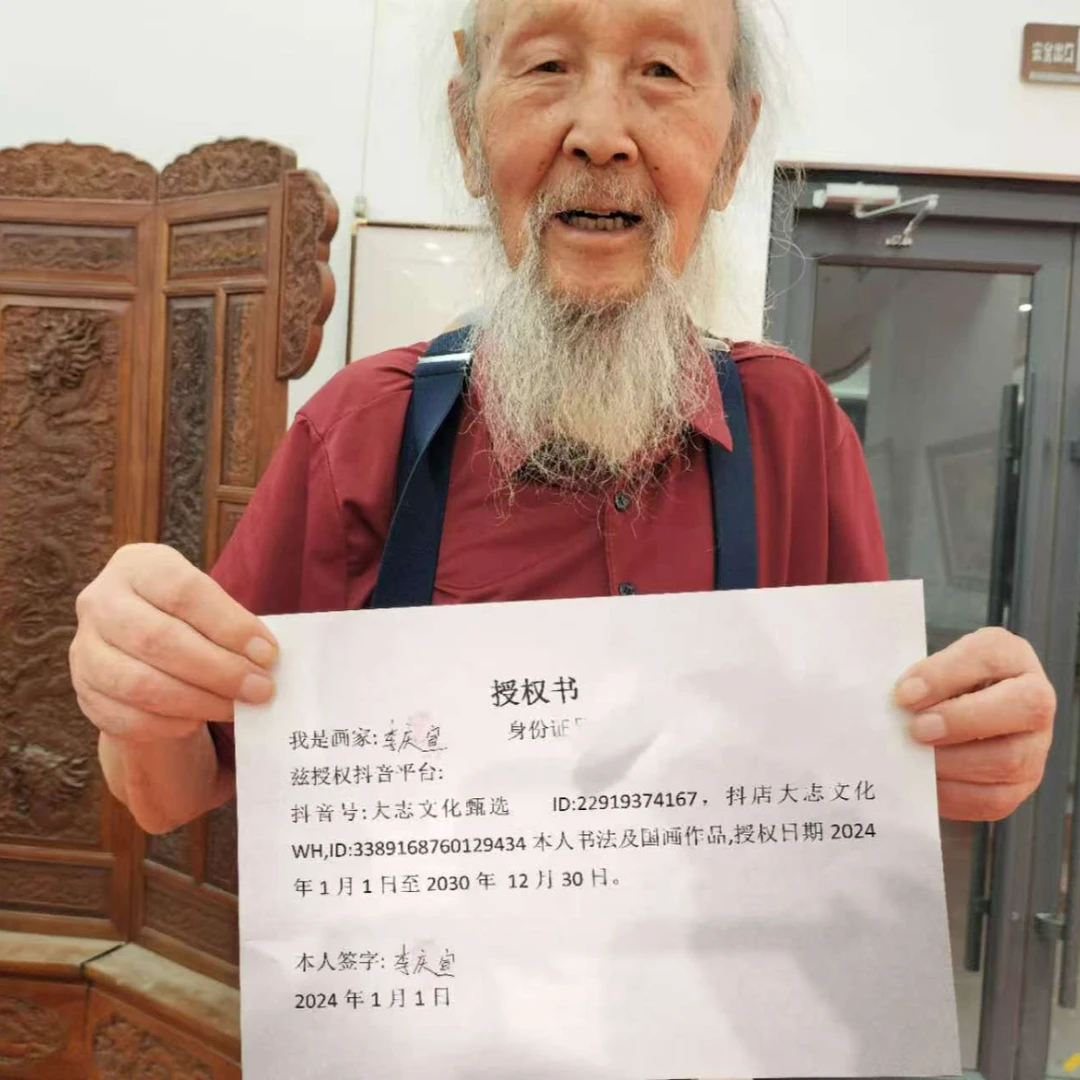 安全出口
授权书
我是画家:李庆宣 身份证
兹授权抖音平台:
抖音号:大志文化甄选 ID:22919374167，抖店大志文化
WH,ID:3389168760129434 本人书法及国画作品,授权日期 2024
年 1 月 1 日至 2030 年 12 月 30 日。
本人签字: 李庆宣
2024 年 1 月 1 日